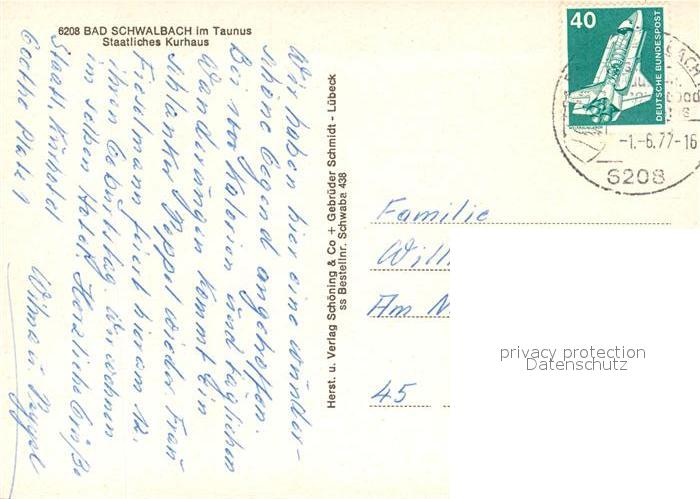 6208 BAD SCHWALBACH im Taunus
Staatliches Kurhaus
Wir haben hier eine wunder-
schöne Gegend angetroffen.
Bei 1000 Kalorien und täglichen
Wanderungen kommt ein
schlanker Peppel wieder. Frau
feiert hier am 12.
ihren Geburtstag. Wir wohnen
im selben Hotel. Herzliche Grüße
Staatl. Kurhotel
Goethe Platz 1
Wilma u.
Herst. u. Verlag Schöning & Co + Gebrüder Schmidt - Lübeck
ss Bestellnr. Schwaba 438
40
DEUTSCHE BUNDESPOST
-1.-6.77-16
6208
Familie
Will
Am
45
privacy protection
Datenschutz